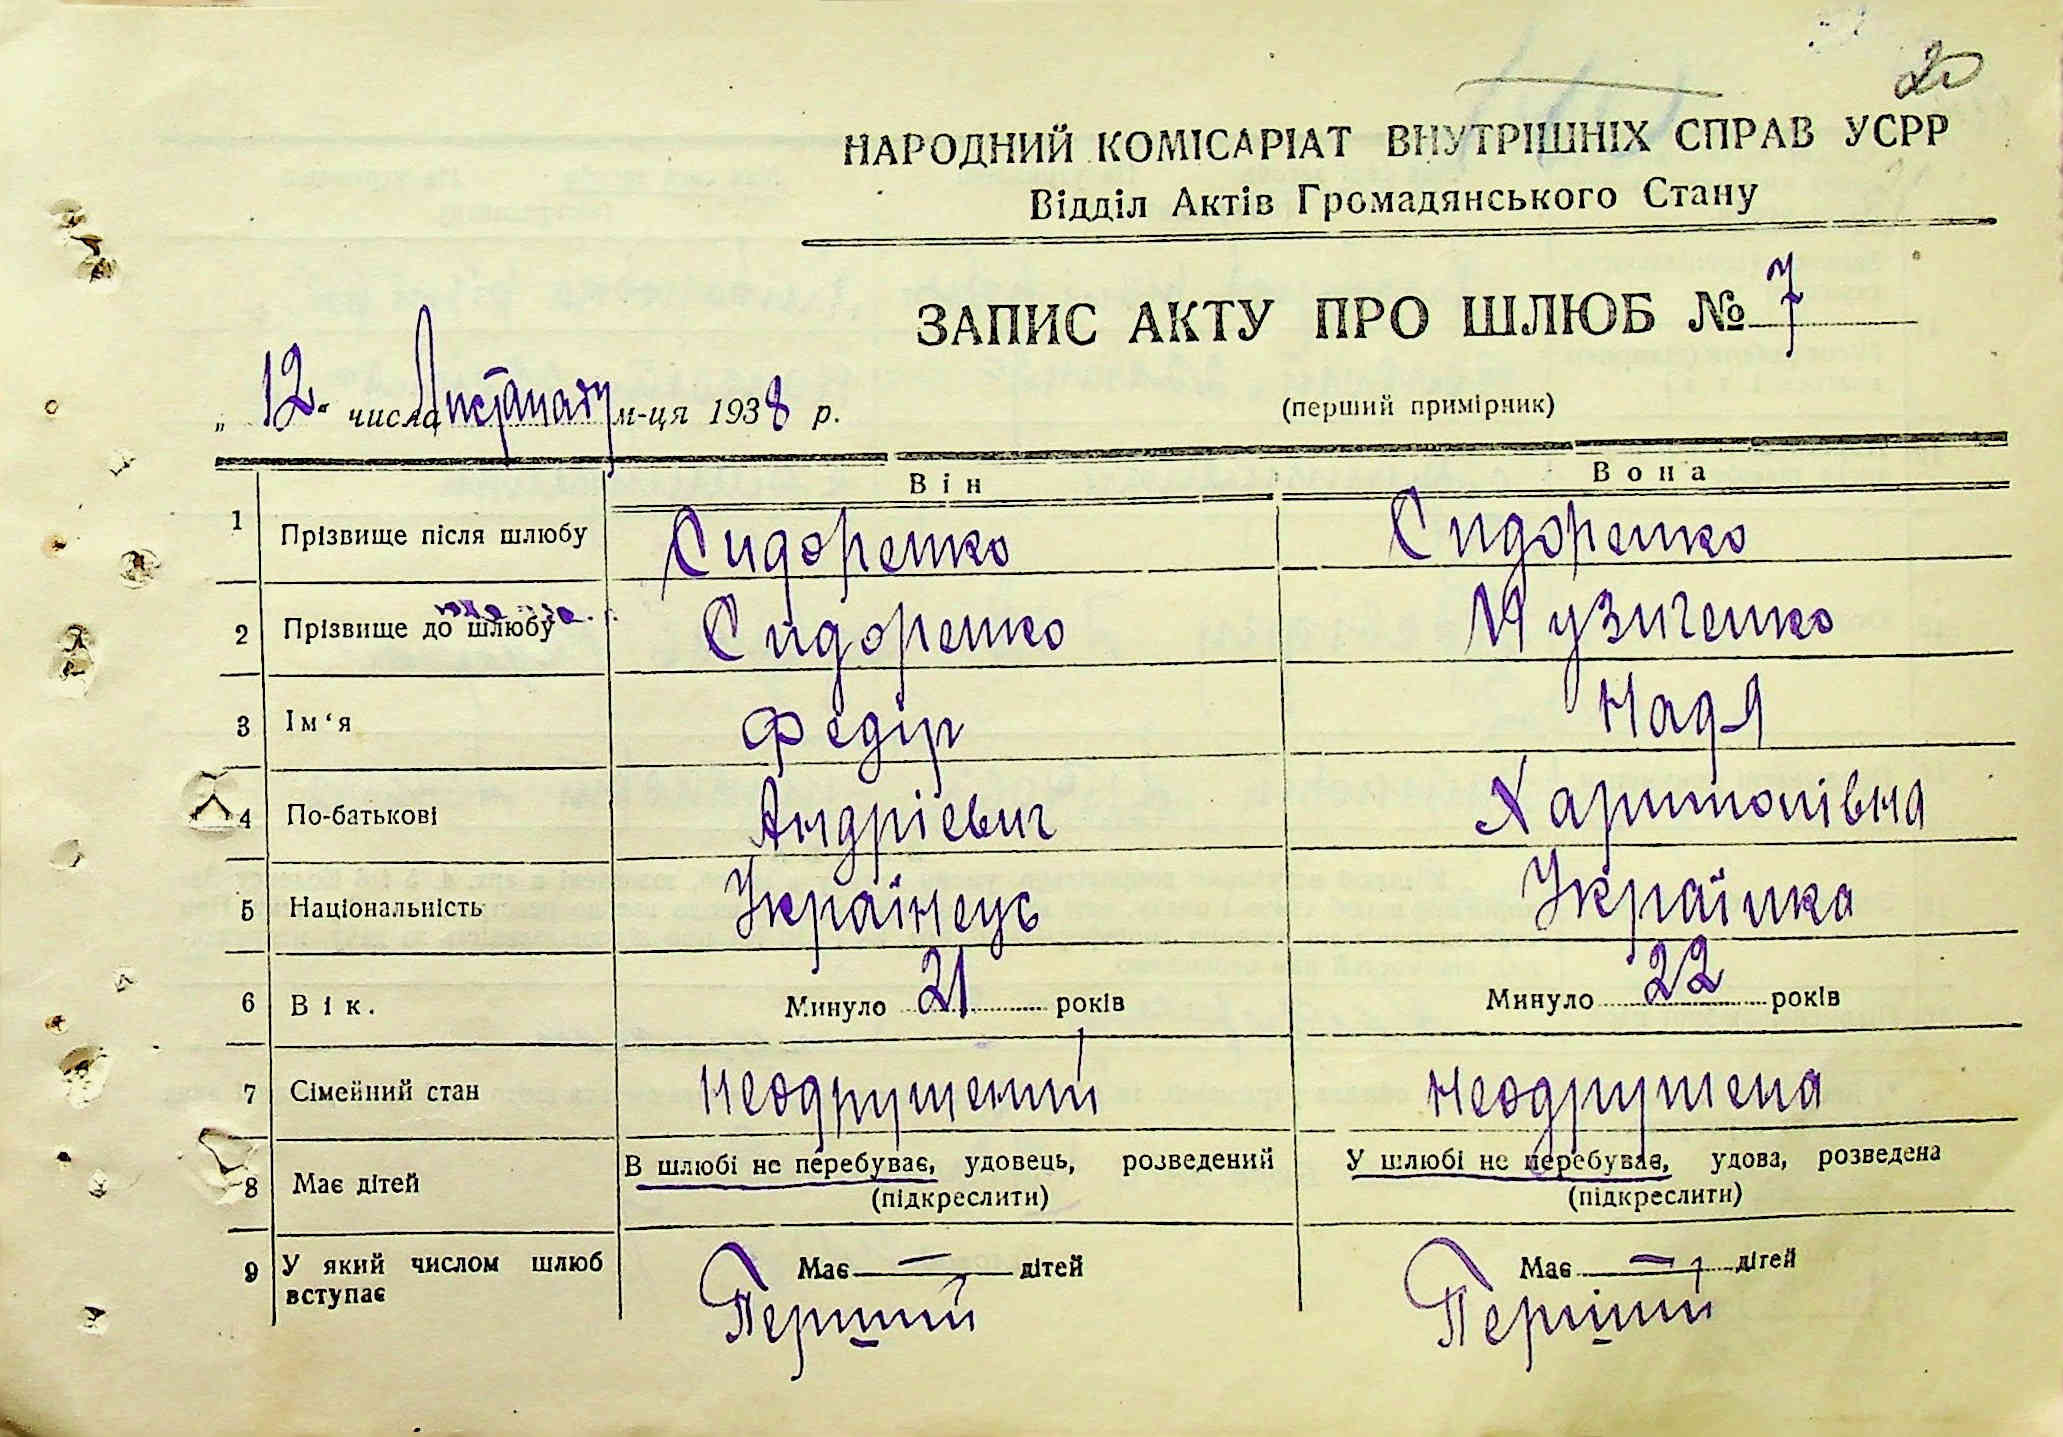 20
НАРОДНИЙ КОМІСАРІАТ ВНУТРІШНІХ СПРАВ УСРР
Відділ Актів Громадянського Стану
ЗАПИС АКТУ ПРО ШЛЮБ № 7
„ 12 " числа Листопаду м-ця 1938 р.
(перший примірник)
Він Вона
1 Прізвище після шлюбу Сидоренко Сидоренко
2 Прізвище до шлюбу Сидоренко Музиченко
3 Ім‘я Федір Надя
4 По-батькові Андрієвич Харитонівна
5 Національність Українець Українка
6 Вік. Минуло 21 років Минуло 22 років
7 Сімейний стан неодружений неодружена
8 Має дітей В шлюбі не перебуває, удовець, розведений У шлюбі не перебуває, удова, розведена
(підкреслити) (підкреслити)
9 У який числом шлюб вступає Має — дітей Має — дітей
Перший Перший